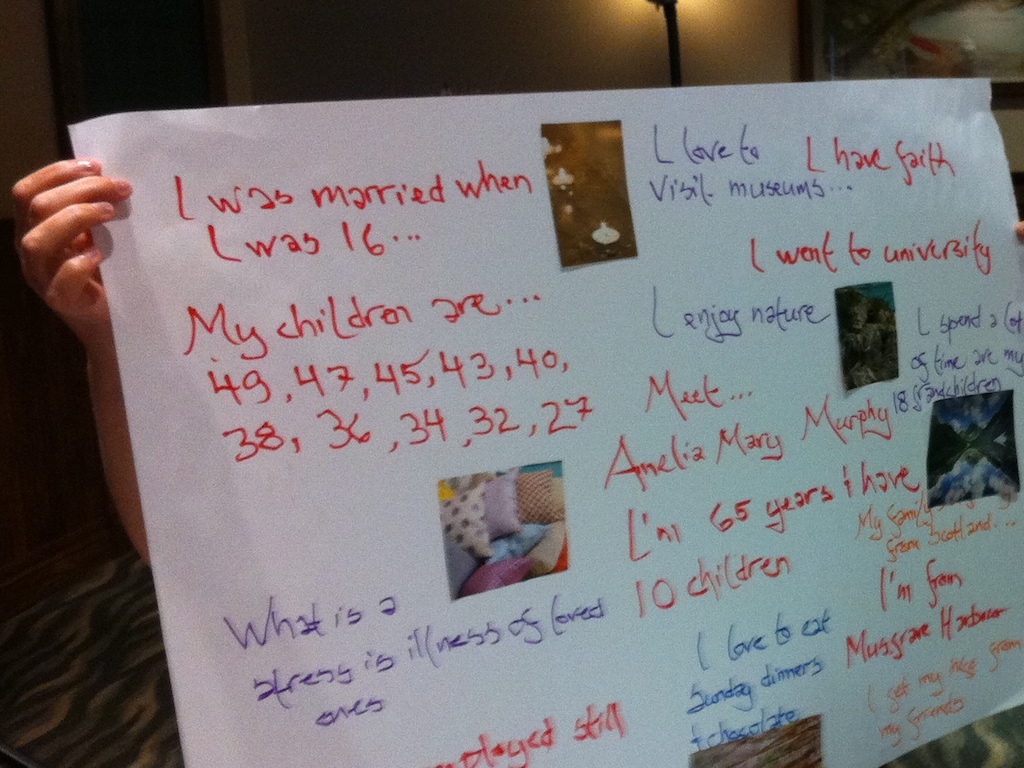 I was married when
I was 16...
My children are...
49, 47, 45, 43, 40,
38, 36, 34, 32, 27
What is a
stress is illness of loved
ones
employed still
I love to
visit museums...
I have faith
I went to university
I enjoy nature
I spend a lot
of time are my
18 grandchildren
Meet...
Amelia Mary Murphy
I'm 65 years & have
10 children
My family
from Scotland...
I'm from
Musgrave Harbour
I love to eat
Sunday dinners
& chocolate
I get my help from
my friends